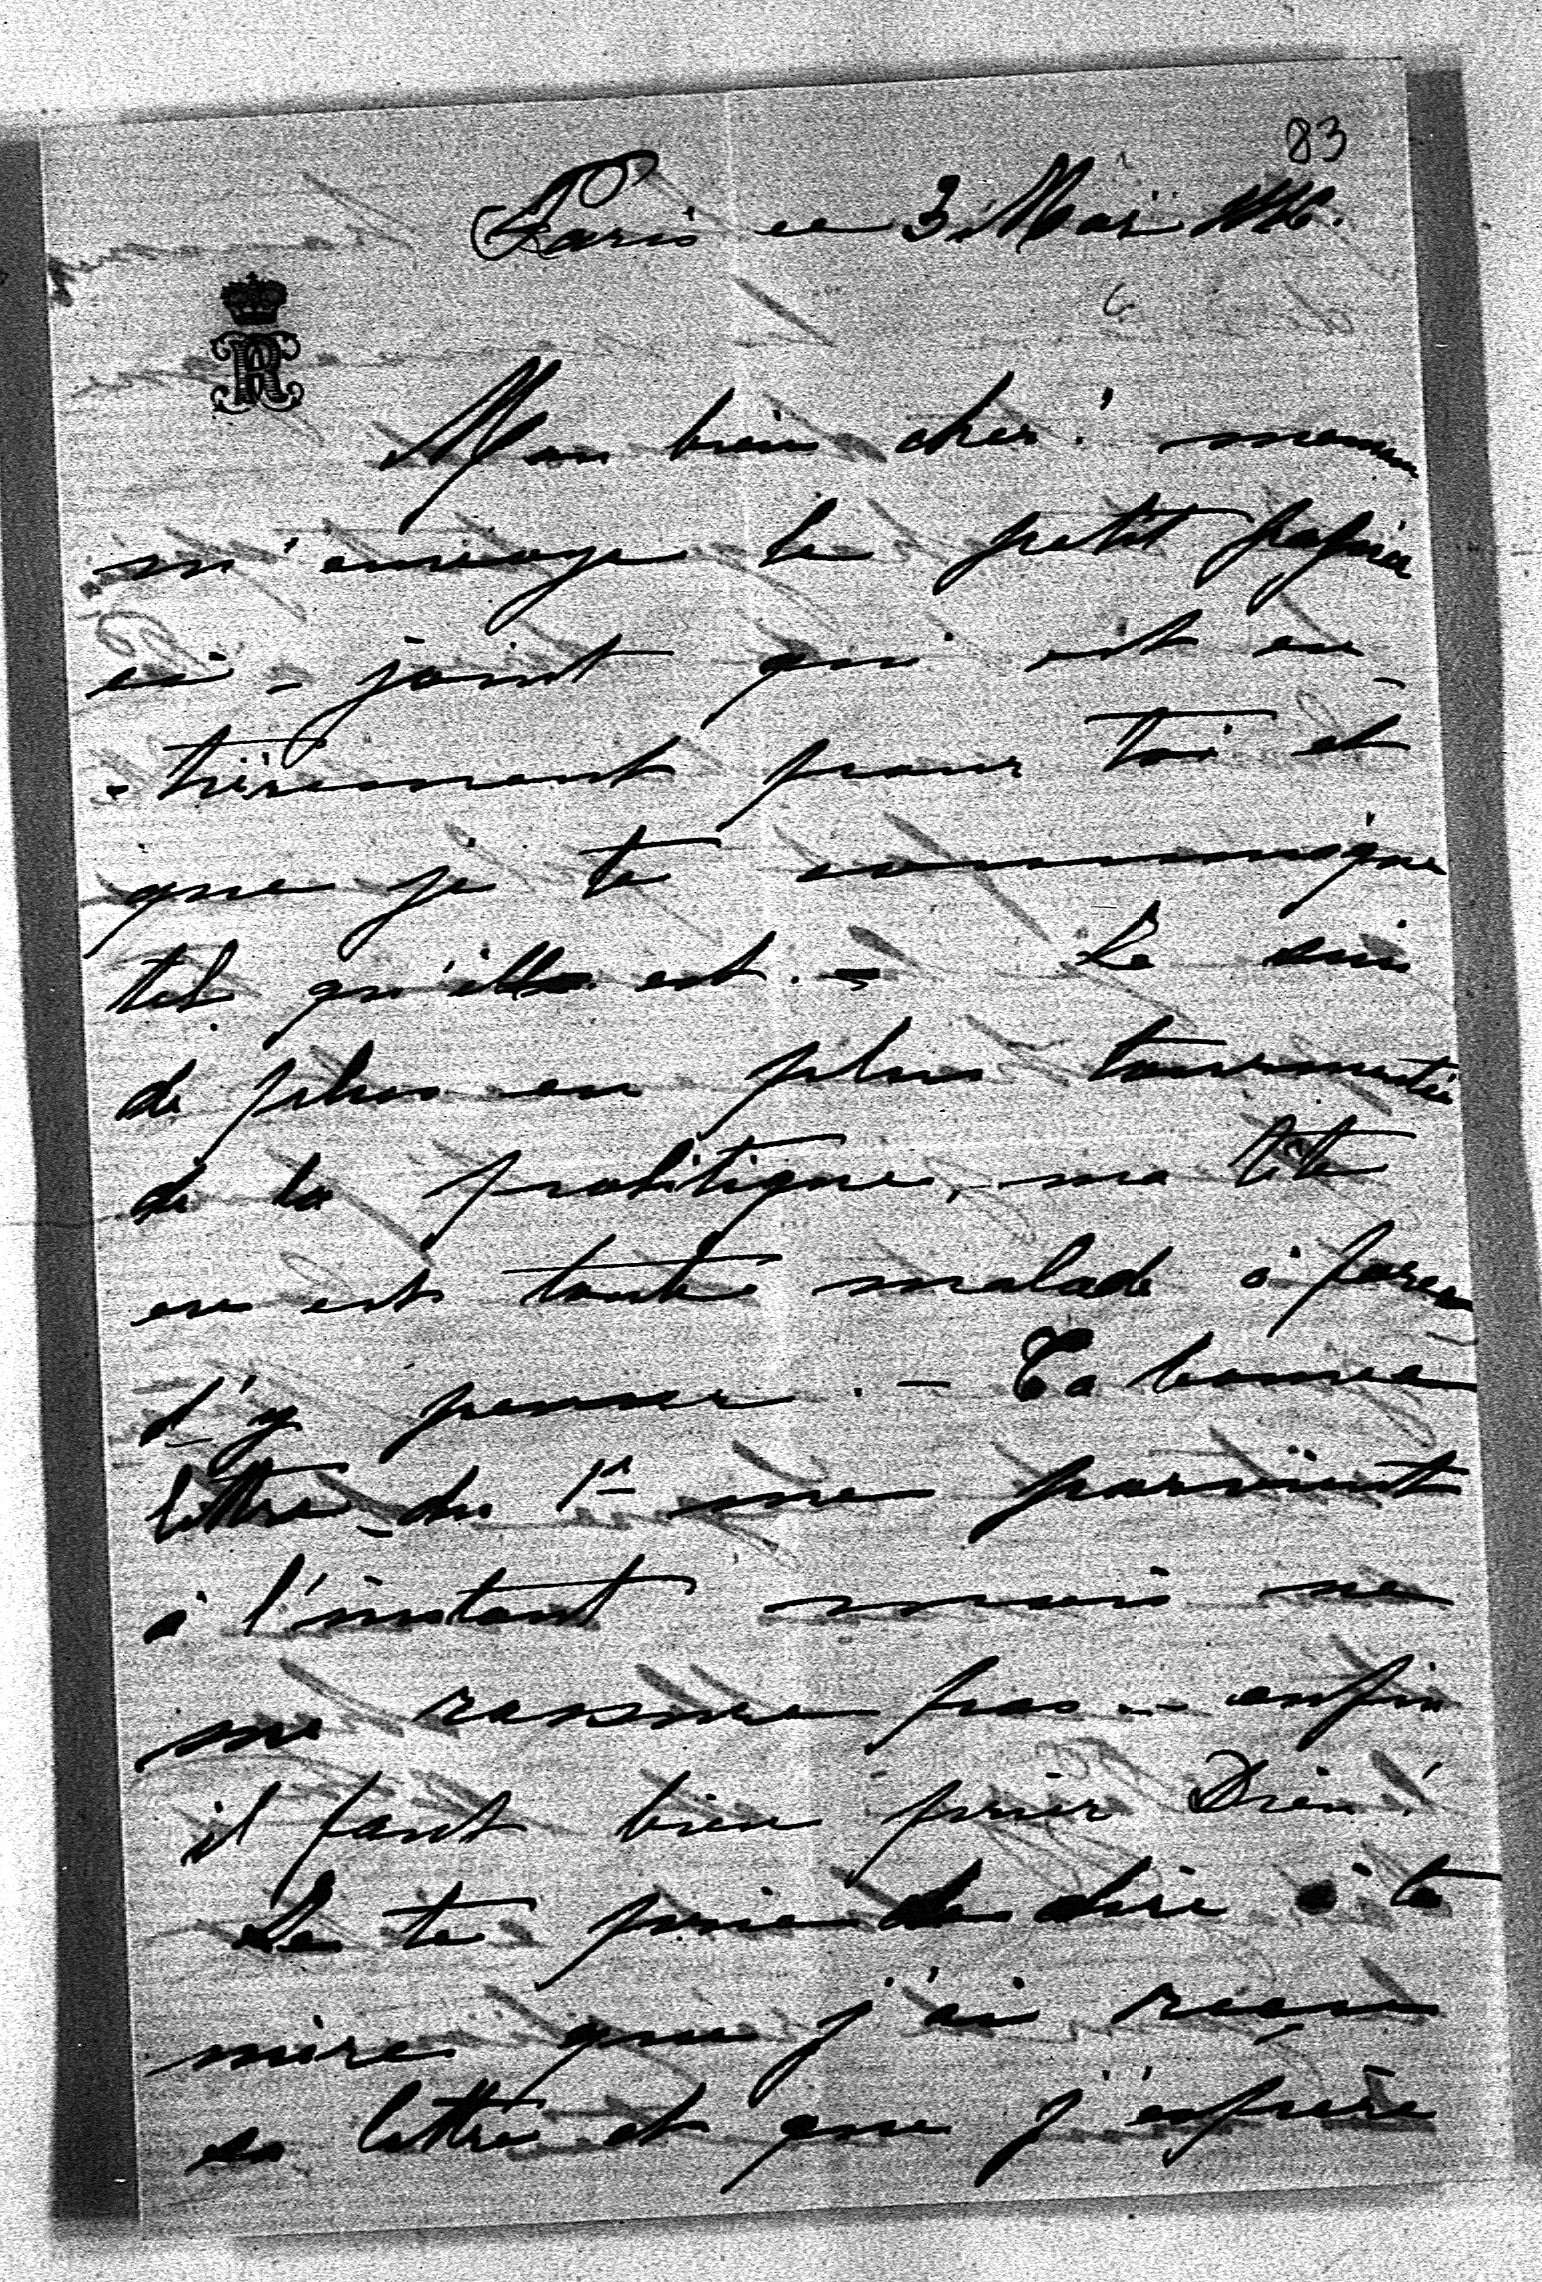 83
Paris ce 3 Mai
Mon bien cher! maman
m'envoye le petit papier
ci-joint qui est en
-tièrement pour toi et
que je te communique
tel qu'il est. - Je suis
de plus en plus tourmentée
de la politique, ma tête
en est toute malade à force
d'y penser. - Ta bonne
lettre du 1er me parvient
à l'instant mais ne
me rassure pas... enfin
il faut bien prier Dieu!
Je te prie de dire à ta
mère que j'ai reçu
sa lettre et que j'espère